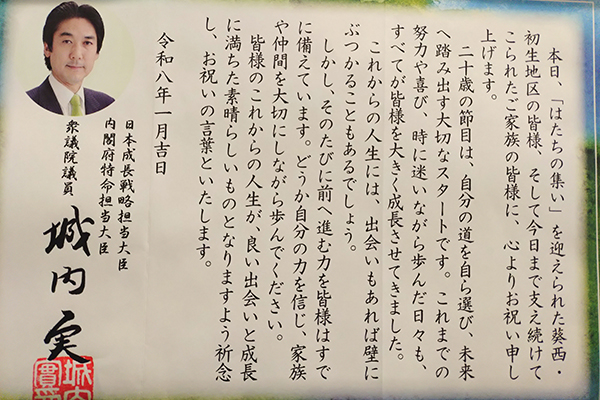 本日、「はたちの集い」を迎えられた葵西・
初生地区の皆様、そして今日まで支え続けて
こられたご家族の皆様に、心よりお祝い申し
上げます。
二十歳の節目は、自分の道を自ら選び、未来
へ踏み出す大切なスタートです。これまでの
努力や喜び、時に迷いながら歩んだ日々も、
すべてが皆様を大きく成長させてきました。
これからの人生には、出会いもあれば壁に
ぶつかることもあるでしょう。
しかし、そのたびに前へ進む力を皆様はすで
に備えています。どうか自分の力を信じ、家族
や仲間を大切にしながら歩んでください。
皆様のこれからの人生が、良い出会いと成長
に満ちた素晴らしいものとなりますよう祈念
し、お祝いの言葉といたします。
令和八年一月吉日
日本成長戦略担当大臣
内閣府特命担当大臣
衆議院議員
城内実